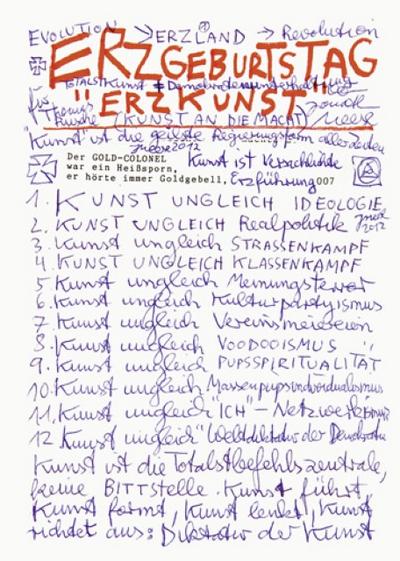 EVOLUTION → ERZLAND → Revolution
ERZGEBURTSTAG
TOTALSTKUNST = Demokratenunterhaltung
"ERZKUNST"
für Thomas
(KUNST AN DIE MACHT)
Jonathan Meese
"Kunst" ist die geilste Regierungsform aller Zeiten
Meese 2012
Der GOLD-COLONEL
war ein Heißsporn,
er hörte immer Goldgebell,
Kunst ist
Erzführung 007
1. KUNST UNGLEICH IDEOLOGIE
2. KUNST UNGLEICH Realpolitik
Meese 2012
3. Kunst ungleich STRASSENKAMPF
4. KUNST UNGLEICH KLASSENKAMPF
5. Kunst ungleich Meinungsterror
6. Kunst ungleich Kulturpartyismus
7. Kunst ungleich Vereinsmeiereien
8. Kunst ungleich VOODOOISMUS
9. Kunst ungleich PUPSSPIRITUALITÄT
10. Kunst ungleich Massenpupsindividualismus
11. Kunst ungleich "ICH" – Netzwerkismus
12 Kunst ungleich "Weltdiktatur der Demokratie
Kunst ist die Totalstbefehlszentrale,
keine BITTSTELLE. Kunst führt,
Kunst formt, Kunst lenkt, Kunst
richtet aus: Diktatur der Kunst